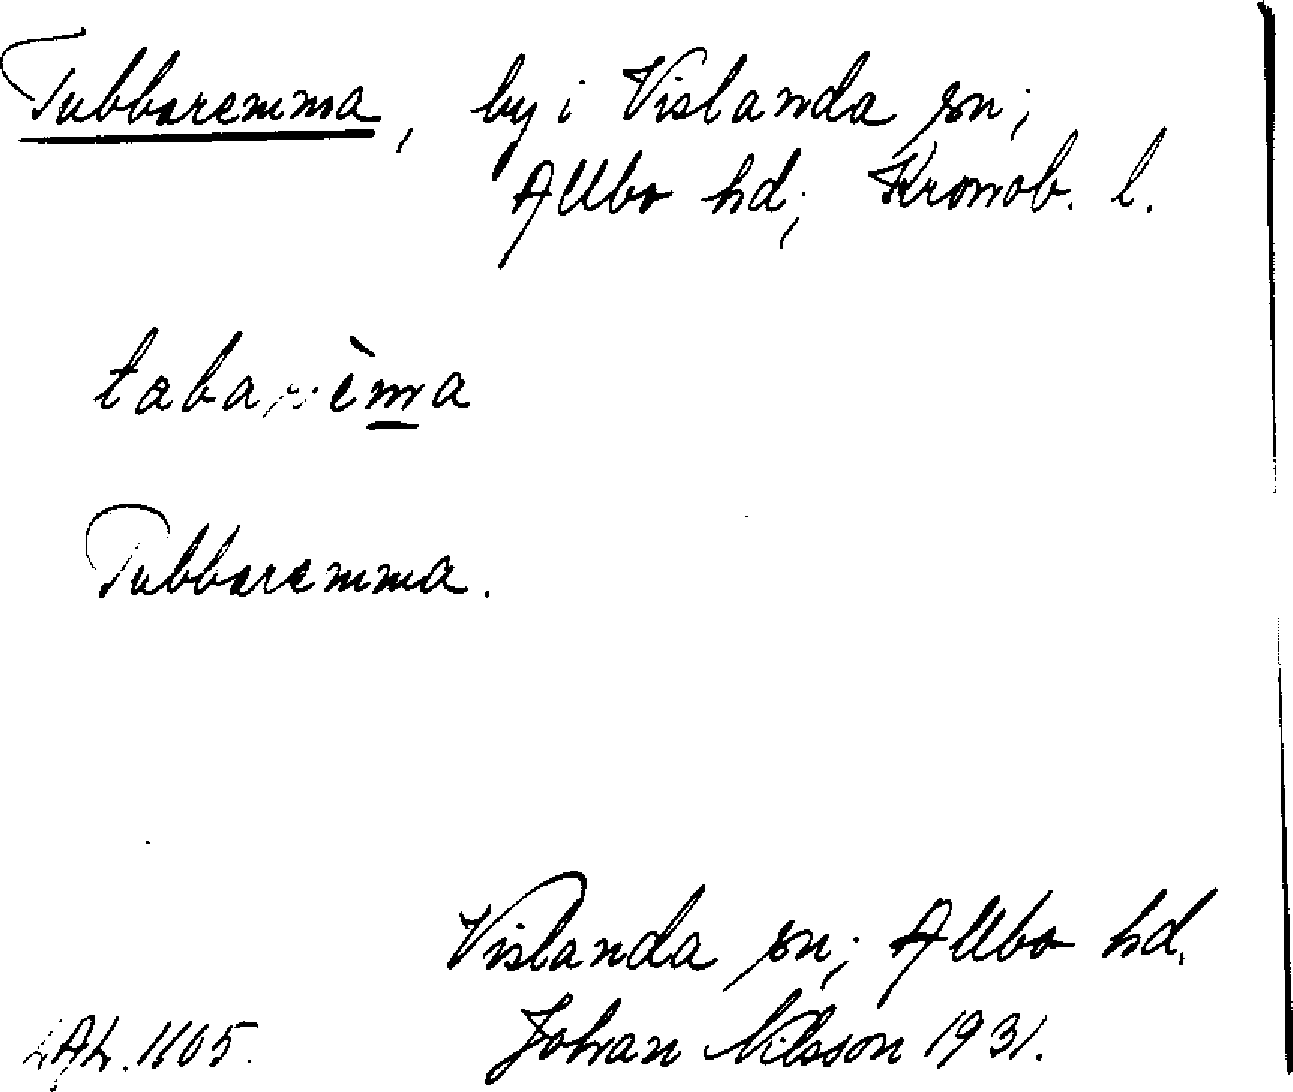 Tubbaremma, by i Vislanda sn;
Allbo hd; Kronob. l.
Tubbaremma.
Vislanda sn; Allbo hd.
Johan Nilsson 1931.
LAL. 1105.